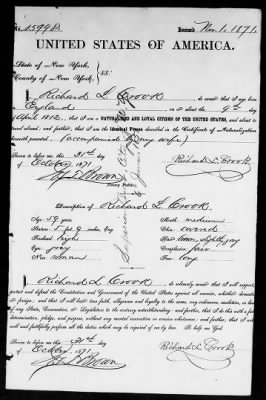 No. 15998. Issued Nov. 1. 1871.
UNITED STATES OF AMERICA.
State of New York,
County of New York, ss.:
I, Richard L. Crook, do swear that I was born
in England, on or about the 9th day
of April 1812, that I am a NATURALIZED AND LOYAL CITIZEN OF THE UNITED STATES, and about to
travel abroad, and further, that I am the Identical Person described in the Certificate of Naturalization
herewith presented. (accompanied by my wife)
Sworn to before me this 31st
day of October 1871
Notary Public.
Richard L. Crook
Description of Richard L. Crook
Age: 59 years
Stature: 5 feet 9 inches, Eng.
Forehead: high
Eyes: grey
Nose: roman
Mouth: medium
Chin: round
Hair: slightly grey
Complexion: fair
Face: long
I, Richard L. Crook do solemnly swear that I will support,
protect and defend the Constitution and Government of the United States against all enemies, whether domestic
or foreign, and that I will bear true faith, allegiance and loyalty to the same, any ordinance, resolution, or law
of any State, Convention, or Legislature to the contrary notwithstanding; and further, that I do this with a full
determination, pledge, and purpose, without any mental reservation or evasion whatsoever; and further, that I will
well and faithfully perform all the duties which may be required of me by law. So help me God.
Sworn to before me this 31st
day of October 1871.
Richard L. Crook